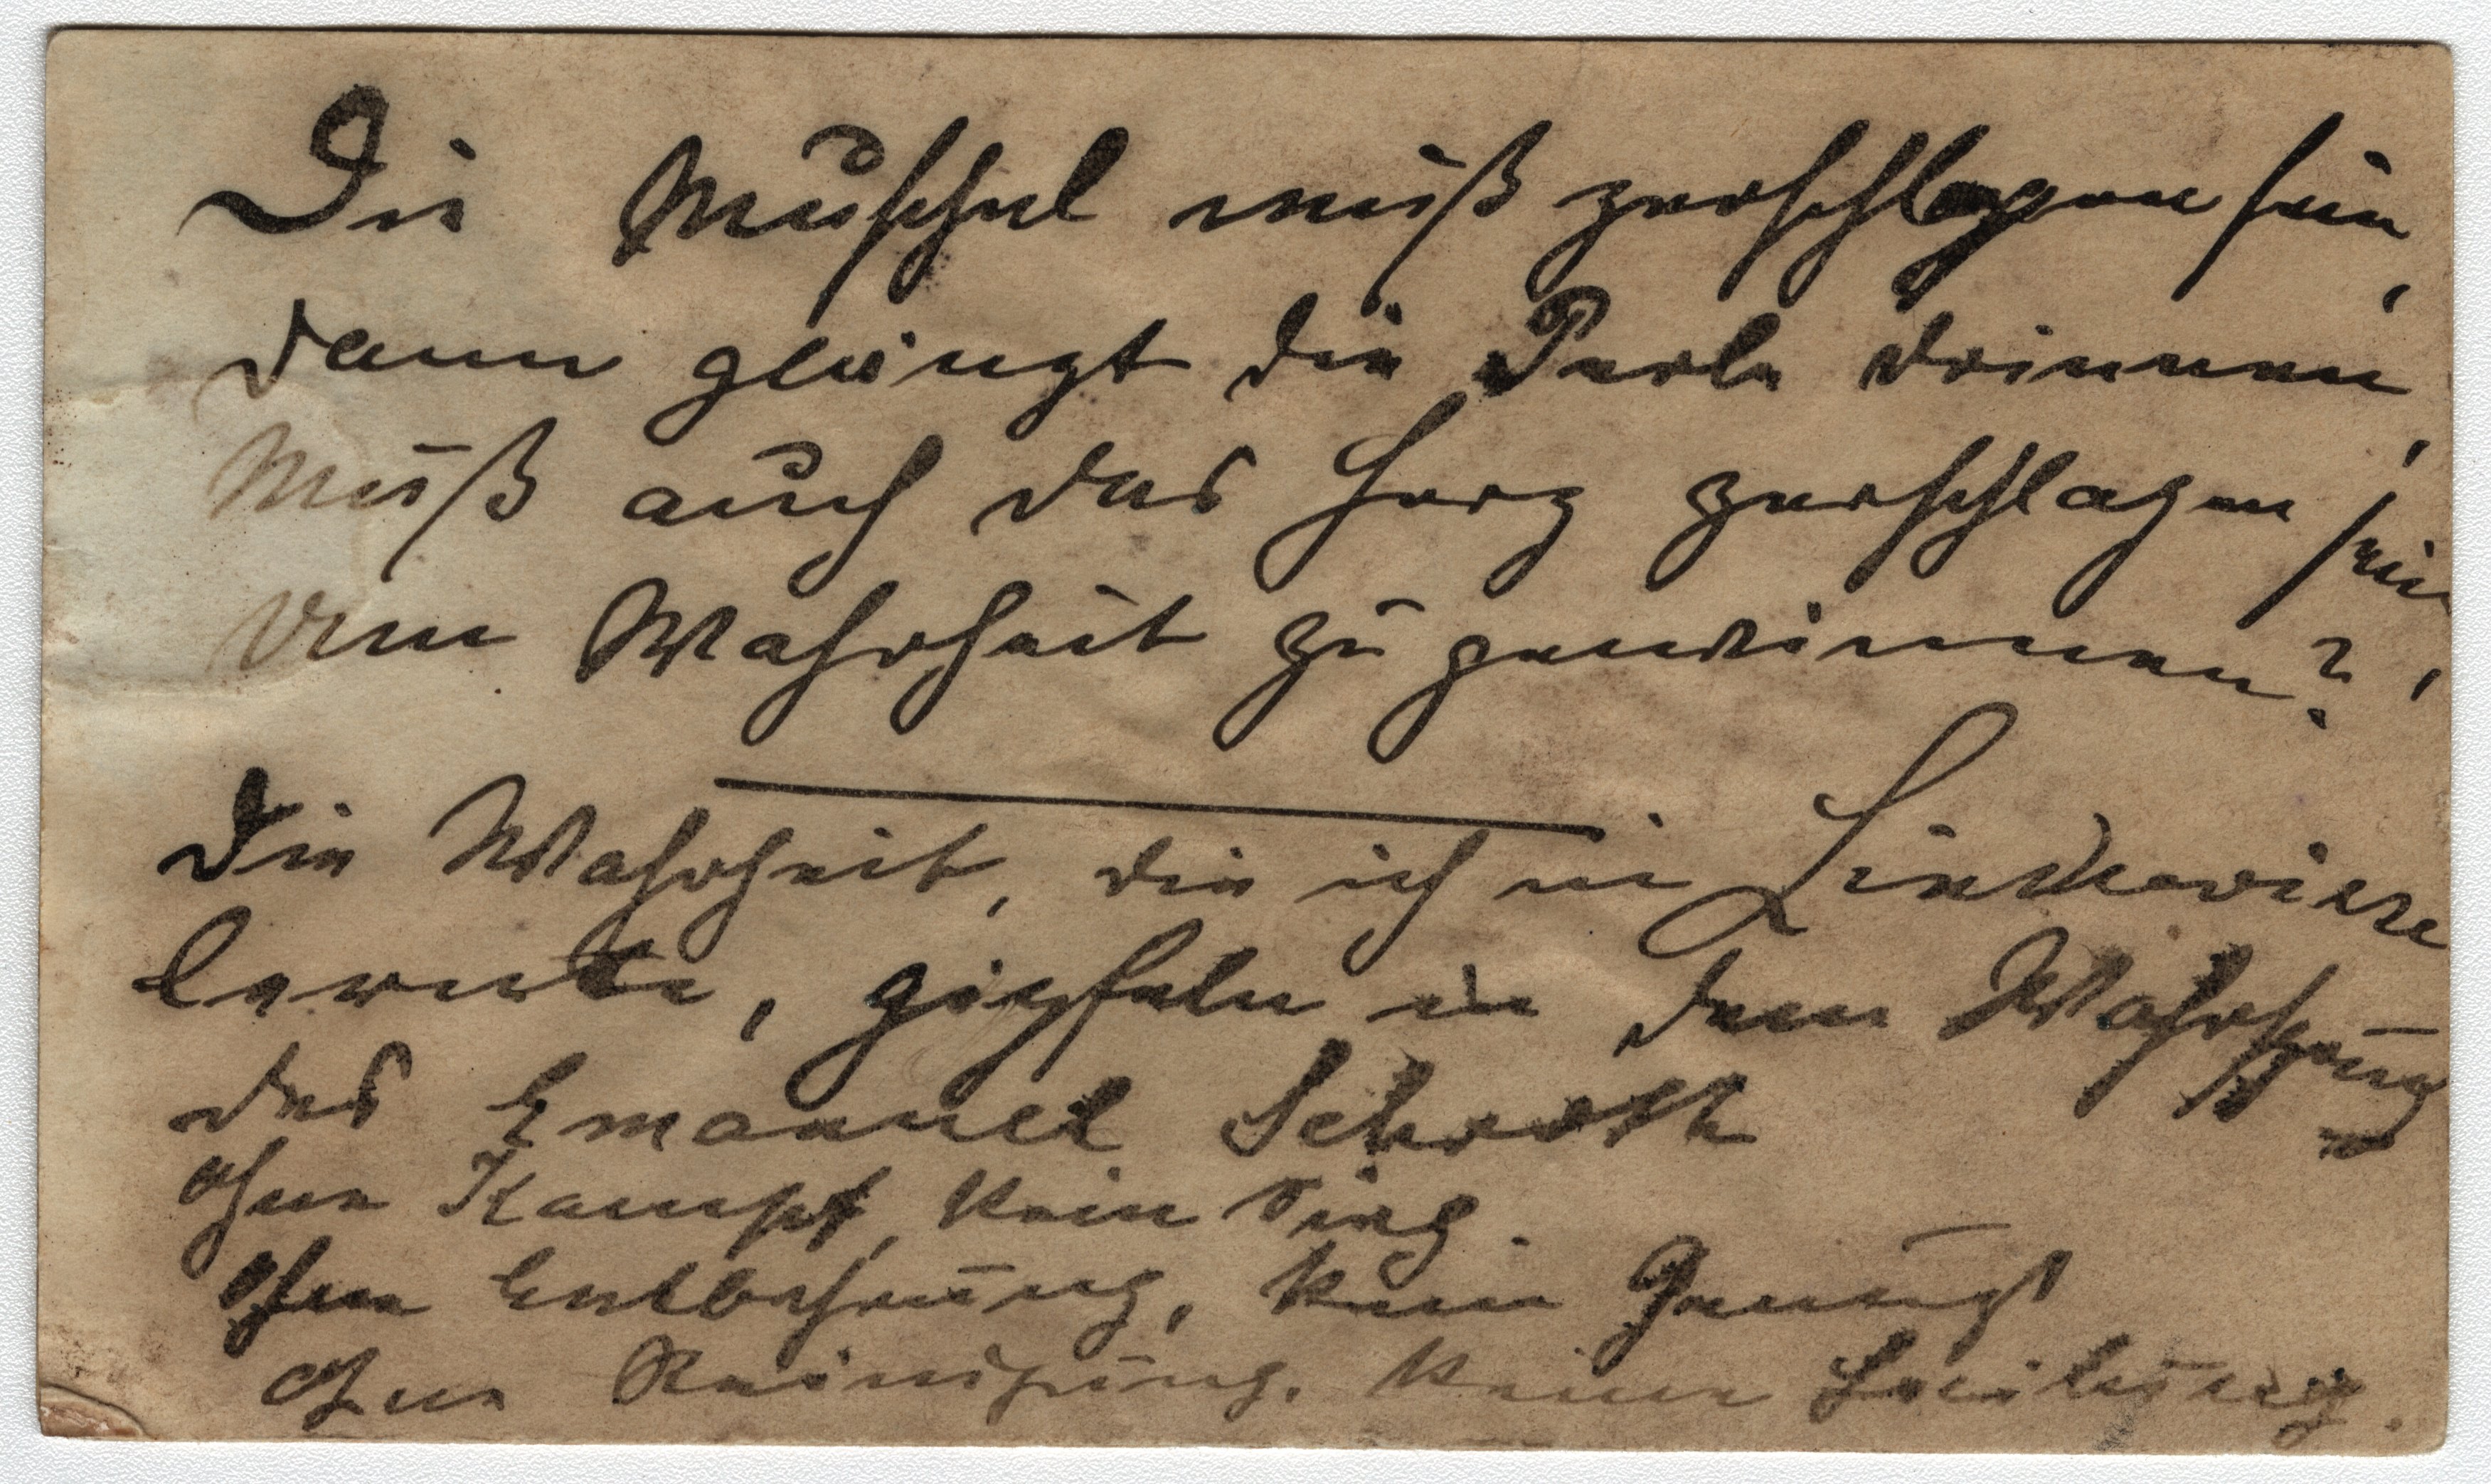 Die Muschel muß zerschlagen sein,
dann glänzt die Perle drinnen,
Muß auch das Herz zerschlagen sein,
um Wahrheit zu gewinnen?
Die Wahrheit, die ich in Lindewiese
lernte, gipfeln in dem Wahrspruch
des Emanuel Schroth
ohne Kampf, kein Sieg.
ohne Entbehrung, kein Genuß
ohne Reinigung. keine Heilung.